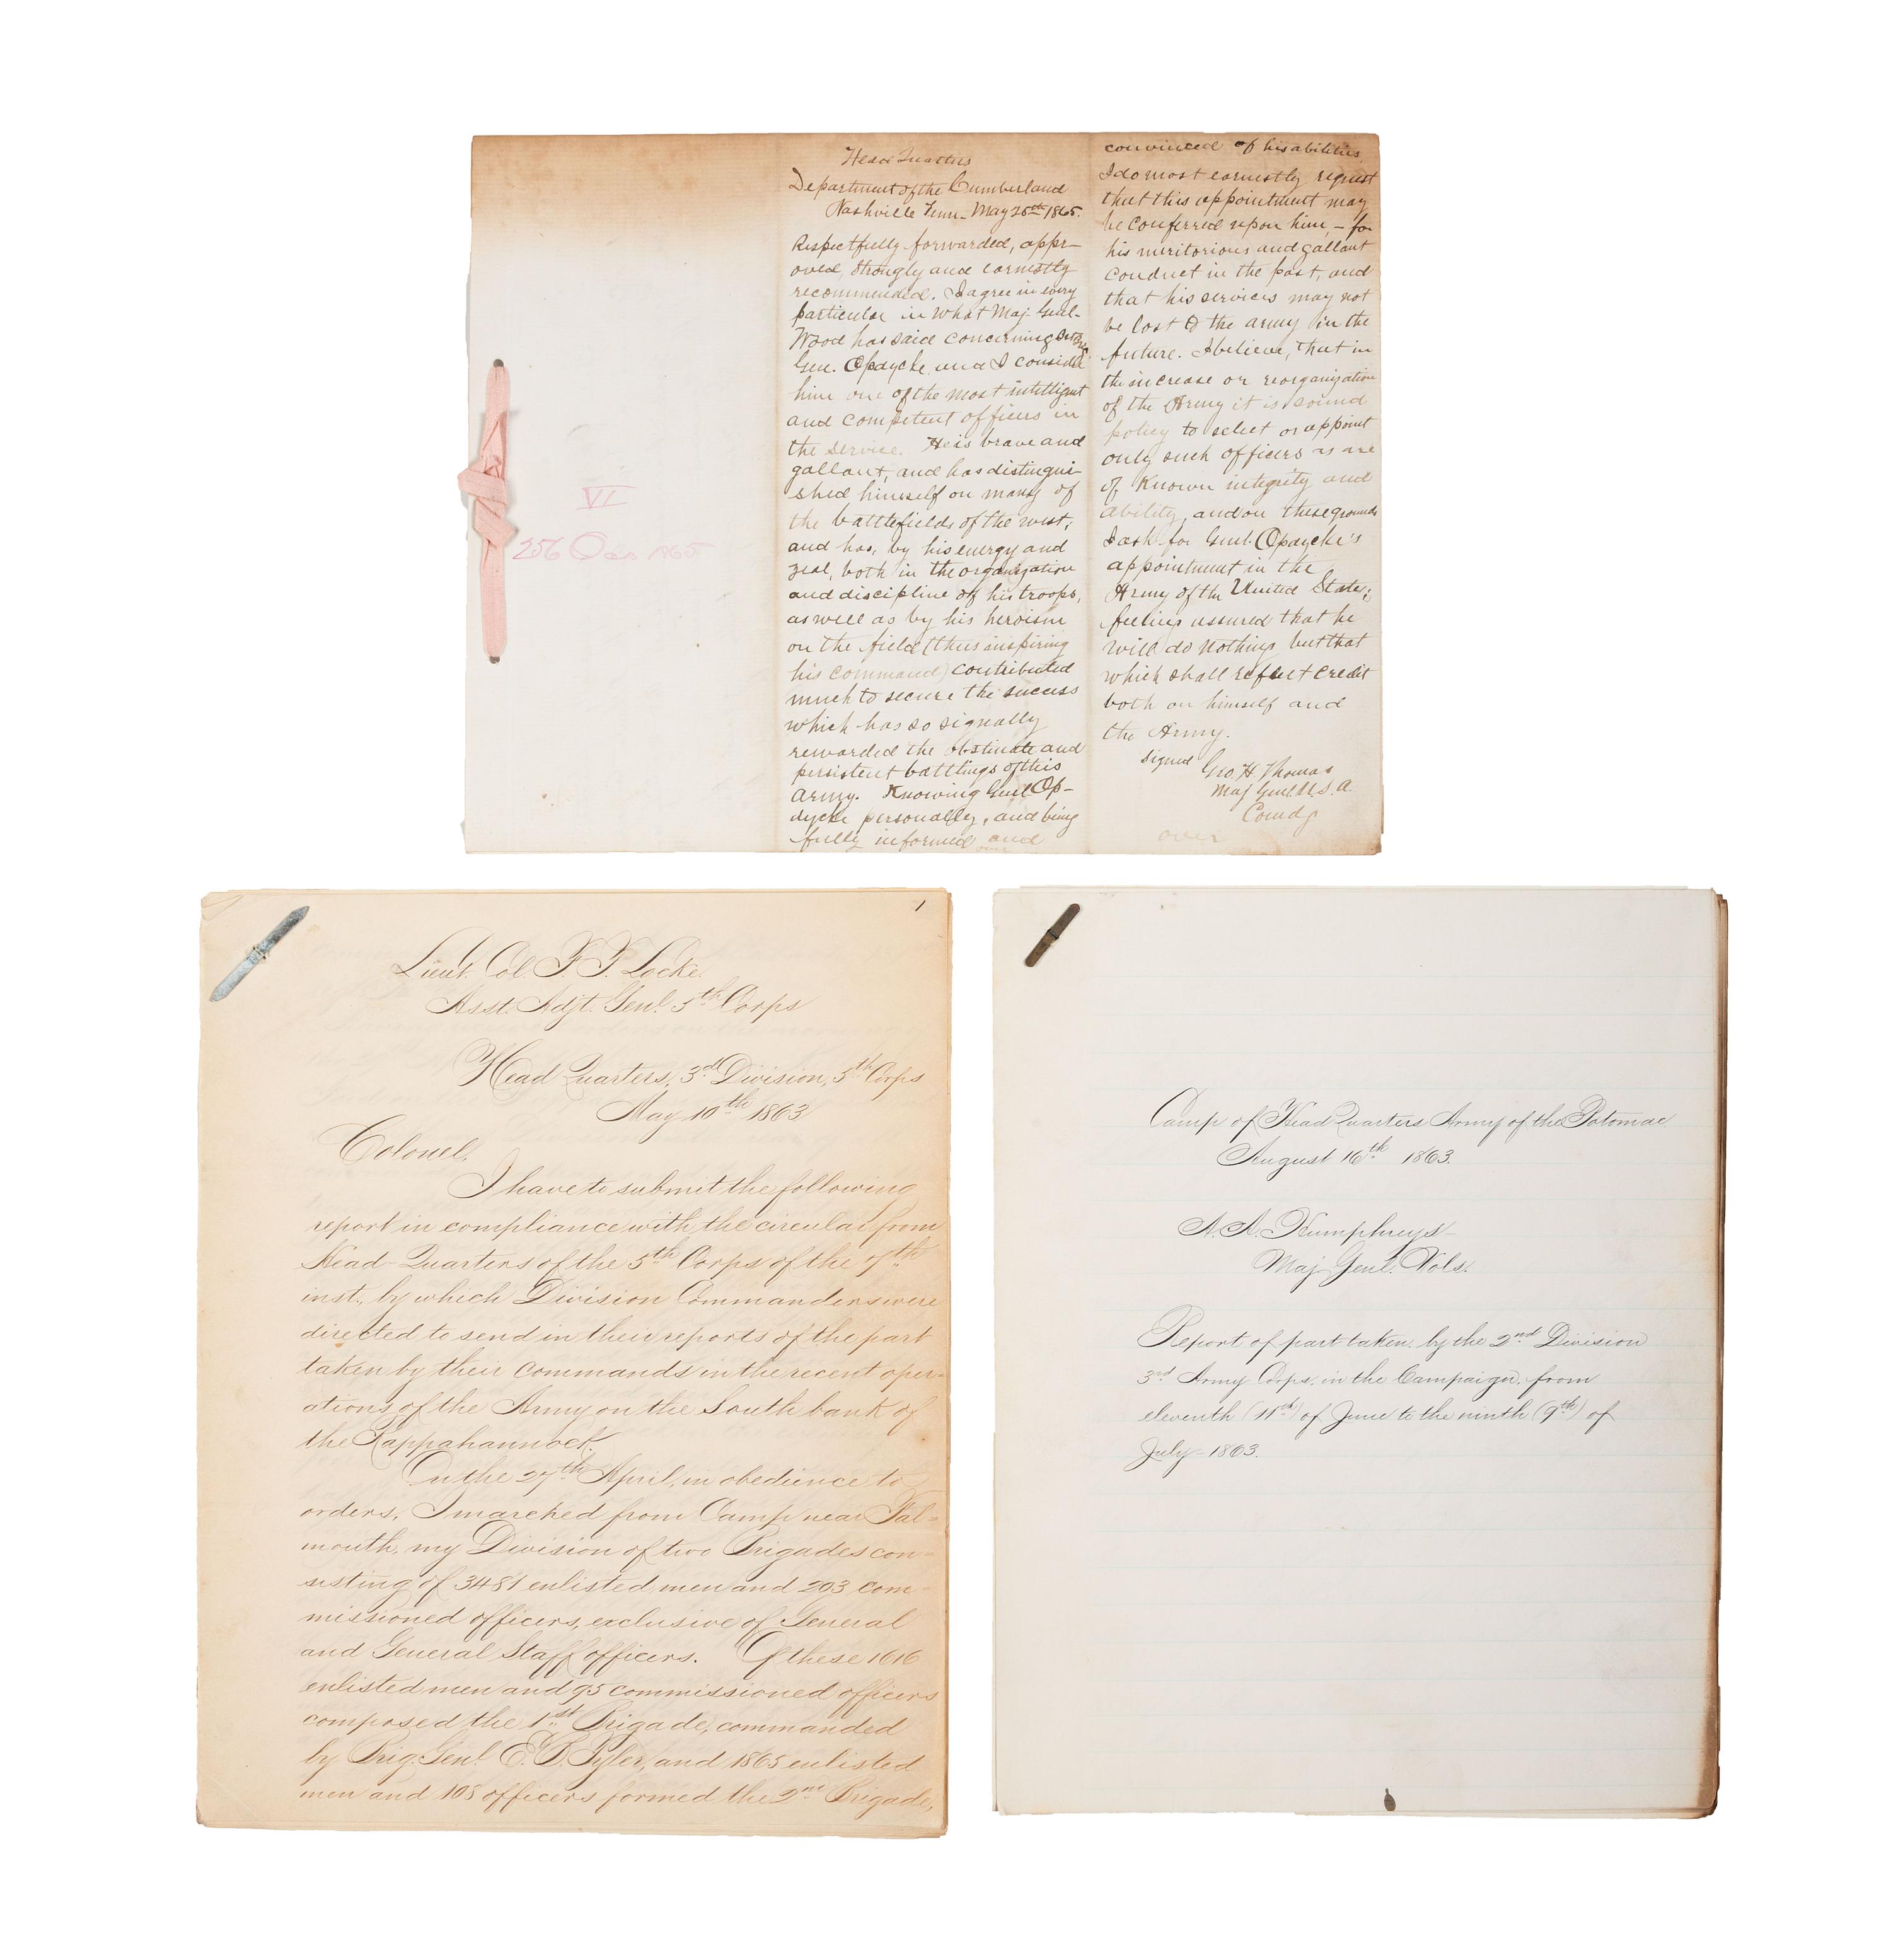 VI
256 O 1865
Head Quarters
Department of the Cumberland
Nashville Tenn. May 25th 1865.
Respectfully forwarded, appr-
oved, strongly and earnestly
recommended. I agree in every
particular in what Maj. Genl.
Wood has said concerning
Gen. Opdycke and I consider
him one of the most intelligent
and competent officers in
the service. He is brave and
gallant, and has distingui-
shed himself on many of
the battlefields of the west,
and has, by his energy and
zeal, both in the organization
and discipline of his troops,
as well as by his heroism
on the field (thus inspiring
his command) contributed
much to secure the success
which has so signally
rewarded the obstinate and
persistent battlings of this
Army. Knowing Genl Op-
dycke personally, and being
fully informed and
over
convinced of his abilities,
I do most earnestly request
that this appointment may
be conferred upon him, – for
his meritorious and gallant
conduct in the past, and
that his services may not
be lost to the army in the
future. I believe, that in
the increase or reorganization
of the Army it is sound
policy to select or appoint
only such officers as are
of known integrity and
ability, and on these grounds
I ask for Genl. Opdycke's
appointment in the
Army of the United States;
feeling assured that he
will do nothing but that
which shall reflect credit
both on himself and
the Army.
signed Geo. H. Thomas
Maj Genl. U.S.A.
Comdg
over
1
Lieut. Col. F. T. Locke.
Asst. Adjt. Genl. 5th Corps
Head Quarters, 3rd Division, 5th Corps
May 10th 1863
Colonel.
I have to submit the following
report in compliance with the circular from
Head Quarters of the 5th Corps of the 7th
inst., by which Division Commanders were
directed to send in their reports of the part
taken by their commands in the recent oper-
ations of the Army on the South bank of
the Rappahannock.
On the 27th April, in obedience to
orders, I marched from Camp near Fal-
mouth, my Division of two Brigades con-
sisting of 3481 enlisted men and 203 com-
missioned officers, exclusive of General
and General Staff officers. Of these 1616
enlisted men and 95 commissioned officers
composed the 1st Brigade, commanded
by Brig. Genl. E. B. Tyler, and 1865 enlisted
men and 108 officers formed the 2nd Brigade,
Camp of Head Quarters Army of the Potomac
August 16th 1863.
A. A. Humphreys
Maj Genl. Vols.
Report of part taken by the 2nd Division
3rd Army Corps, in the Campaign, from
eleventh (11th) of June to the ninth (9th) of
July – 1863.